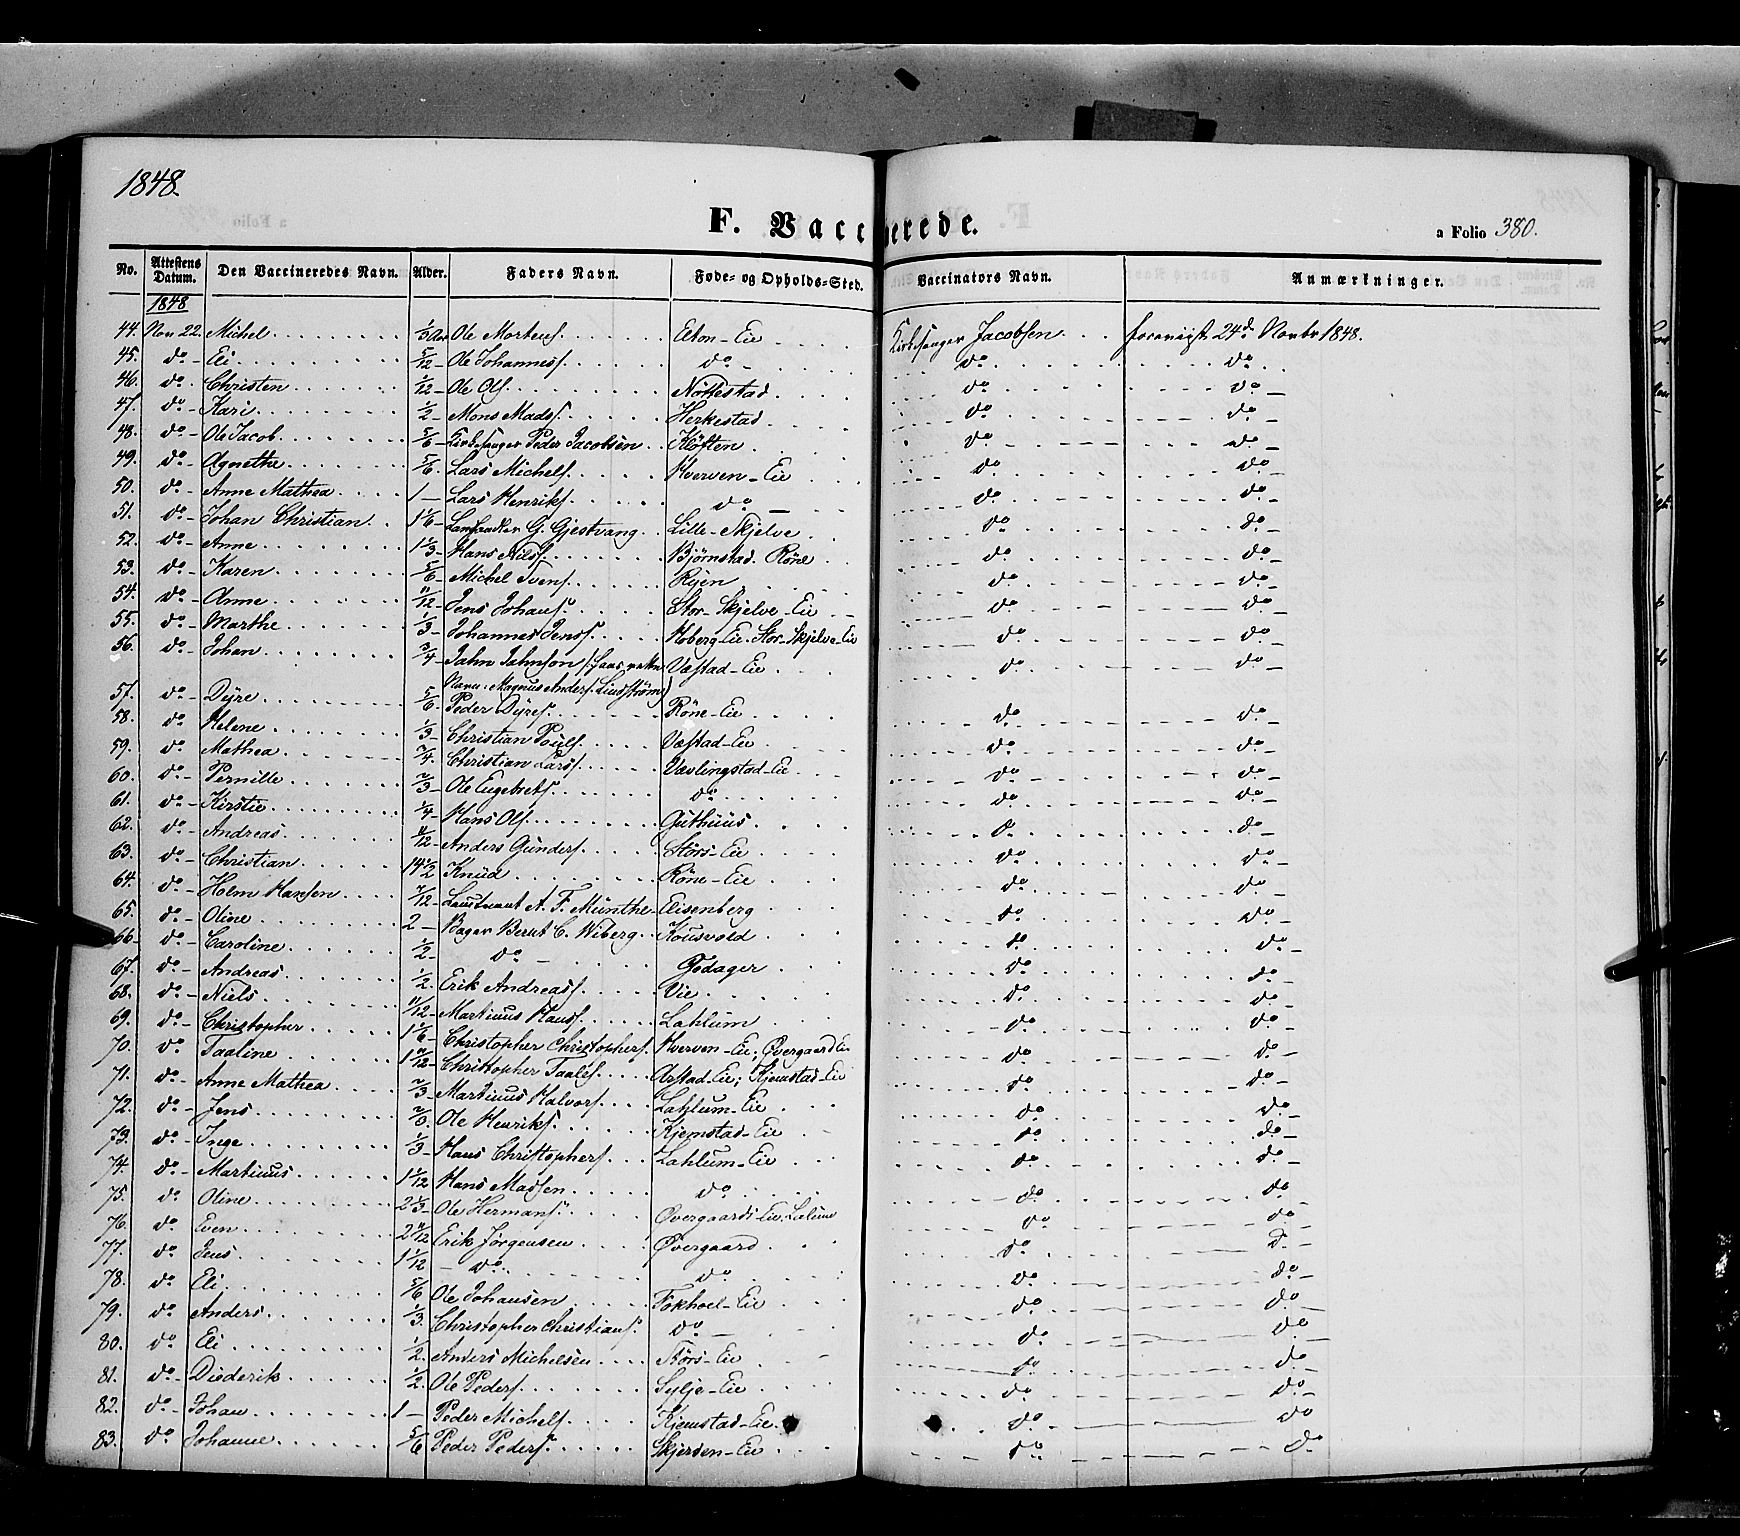 1848.
F. Vaccinerede.
a Folio 380.
No. Attestens Datum. Den Vaccineredes Navn. Alder. Faders Navn. Føde- og Opholds-Sted. Vaccinators Navn. Anmærkninger.
1848
44. Nov 22. Michel 1/3 Aar Ole Mortens. Eiton-Eie Kirkesanger Jacobsen. forevist 24d Novbr 1848.
45. do - Eli 5/12 - Ole Johanness. do - do do
46. do - Christen 1/12 - Ole Ols. Nöttestad do do -
47. do - Kari 1/2 - Mons Mads. Herkestad do do -
48. do - Ole Jacob 5/6 - Kirkesanger Peder Jacobsen Kloften do do -
49. do - Agnethe 5/6 - Lars Michels. Hverven-Eie do do -
50. do - Anne Mathea 1 - Lars Henriks. do - do do -
51. do - Johan Christian 1 1/6 - G. Gjestvang Lille-Skjelve do do -
52. do - Anne 1 1/3 - Hans Nils. Björnstad. Röne do do -
53. do - Karen 5/6 - Michel Svens. Ryen do do -
54. do - Anne 11/12 - Jens Johans. Stor-Skjelve-Eie do do -
55. do - Marthe 1/3 - Johannes Jens. Hoberg-Eie. Stor-Skjelve-Eie do do -
56. do - Johan 3/4 - Jahn Jahnson Væstad-Eie do do -
Navn: Magnus Anders. Lindström)
57. do - Dyre 5/6 - Peder Dyres. Röne-Eie do do -
58. do Helene 1/3 - Christian Pouls. Væstad-Eie do do -
59. do Mathea 3/4 - Christian Lars. Vævlingstad-Eie do do -
60. do - Pernille 2/3 - Ole Engebrets. do do do -
61. do - Kirstie 1/4 - Hans Ols. Guthuus do do -
62. do - Andreas 11/12 - Anders Gunders. Störs-Eie do do -
63. do - Christian 14 1/2 Knud Röne-Eie do do -
64. do - Holm Hansen 7/12 - Lieutenant A. F. Münthe - Elisenberg do do -
65. do - Oline 2 - Bager Bernt C. Wiberg Kousvold do do -
66. do - Caroline 1/2 - do - Godager do do -
67. do - Andreas 1/2 - Erik Andreas. Vie do do -
68. do - Niels 11/12 - Martinus Hans. Lahlum do do -
69. do - Christopher 1 1/6 - Christopher Christophers. Hverven-Eie; Övergaard Eie do do -
70. do Taaline 1 7/12 - Christopher Taalis. Arstad-Eie; Kjemstad-Eie do do -
71. do - Anne Mathea 2/3 - Martinus Halvors. Lahlum-Eie do do -
72. do - Jens Ole Henriks. Kjemstad-Eie do do -
73. do - Inge 1/3 - Hans Christophers. Lahlum-Eie do do -
74. do - Martinus 1 1/12 Hans Madsen do do do -
75. do Oline 2 1/3 - Ole Hermans. Övergaards-Eie; Lalum do do -
76. do - Even 2 7/12 Erik Jörgensen Övergaard do do -
77. do - Jens 1 1/12 - do - do do do -
78. do - Eli 5/6 Ole Johansen Fokhoel-Eie do do -
79. do - Anders 1/3. Christopher Christians. do - do do -
80. do - Eli 1/2. Anders Michelsen Störs-Eie do do
81. do - Diederik 1/2. Ole Peders. Sylje-Eie do do -
82. do - Johan 1 - Peder Michels. Kjemstad-Eie do do
83. do - Johanne 5/6 Peder Peders. Skjerden-Eie do do -